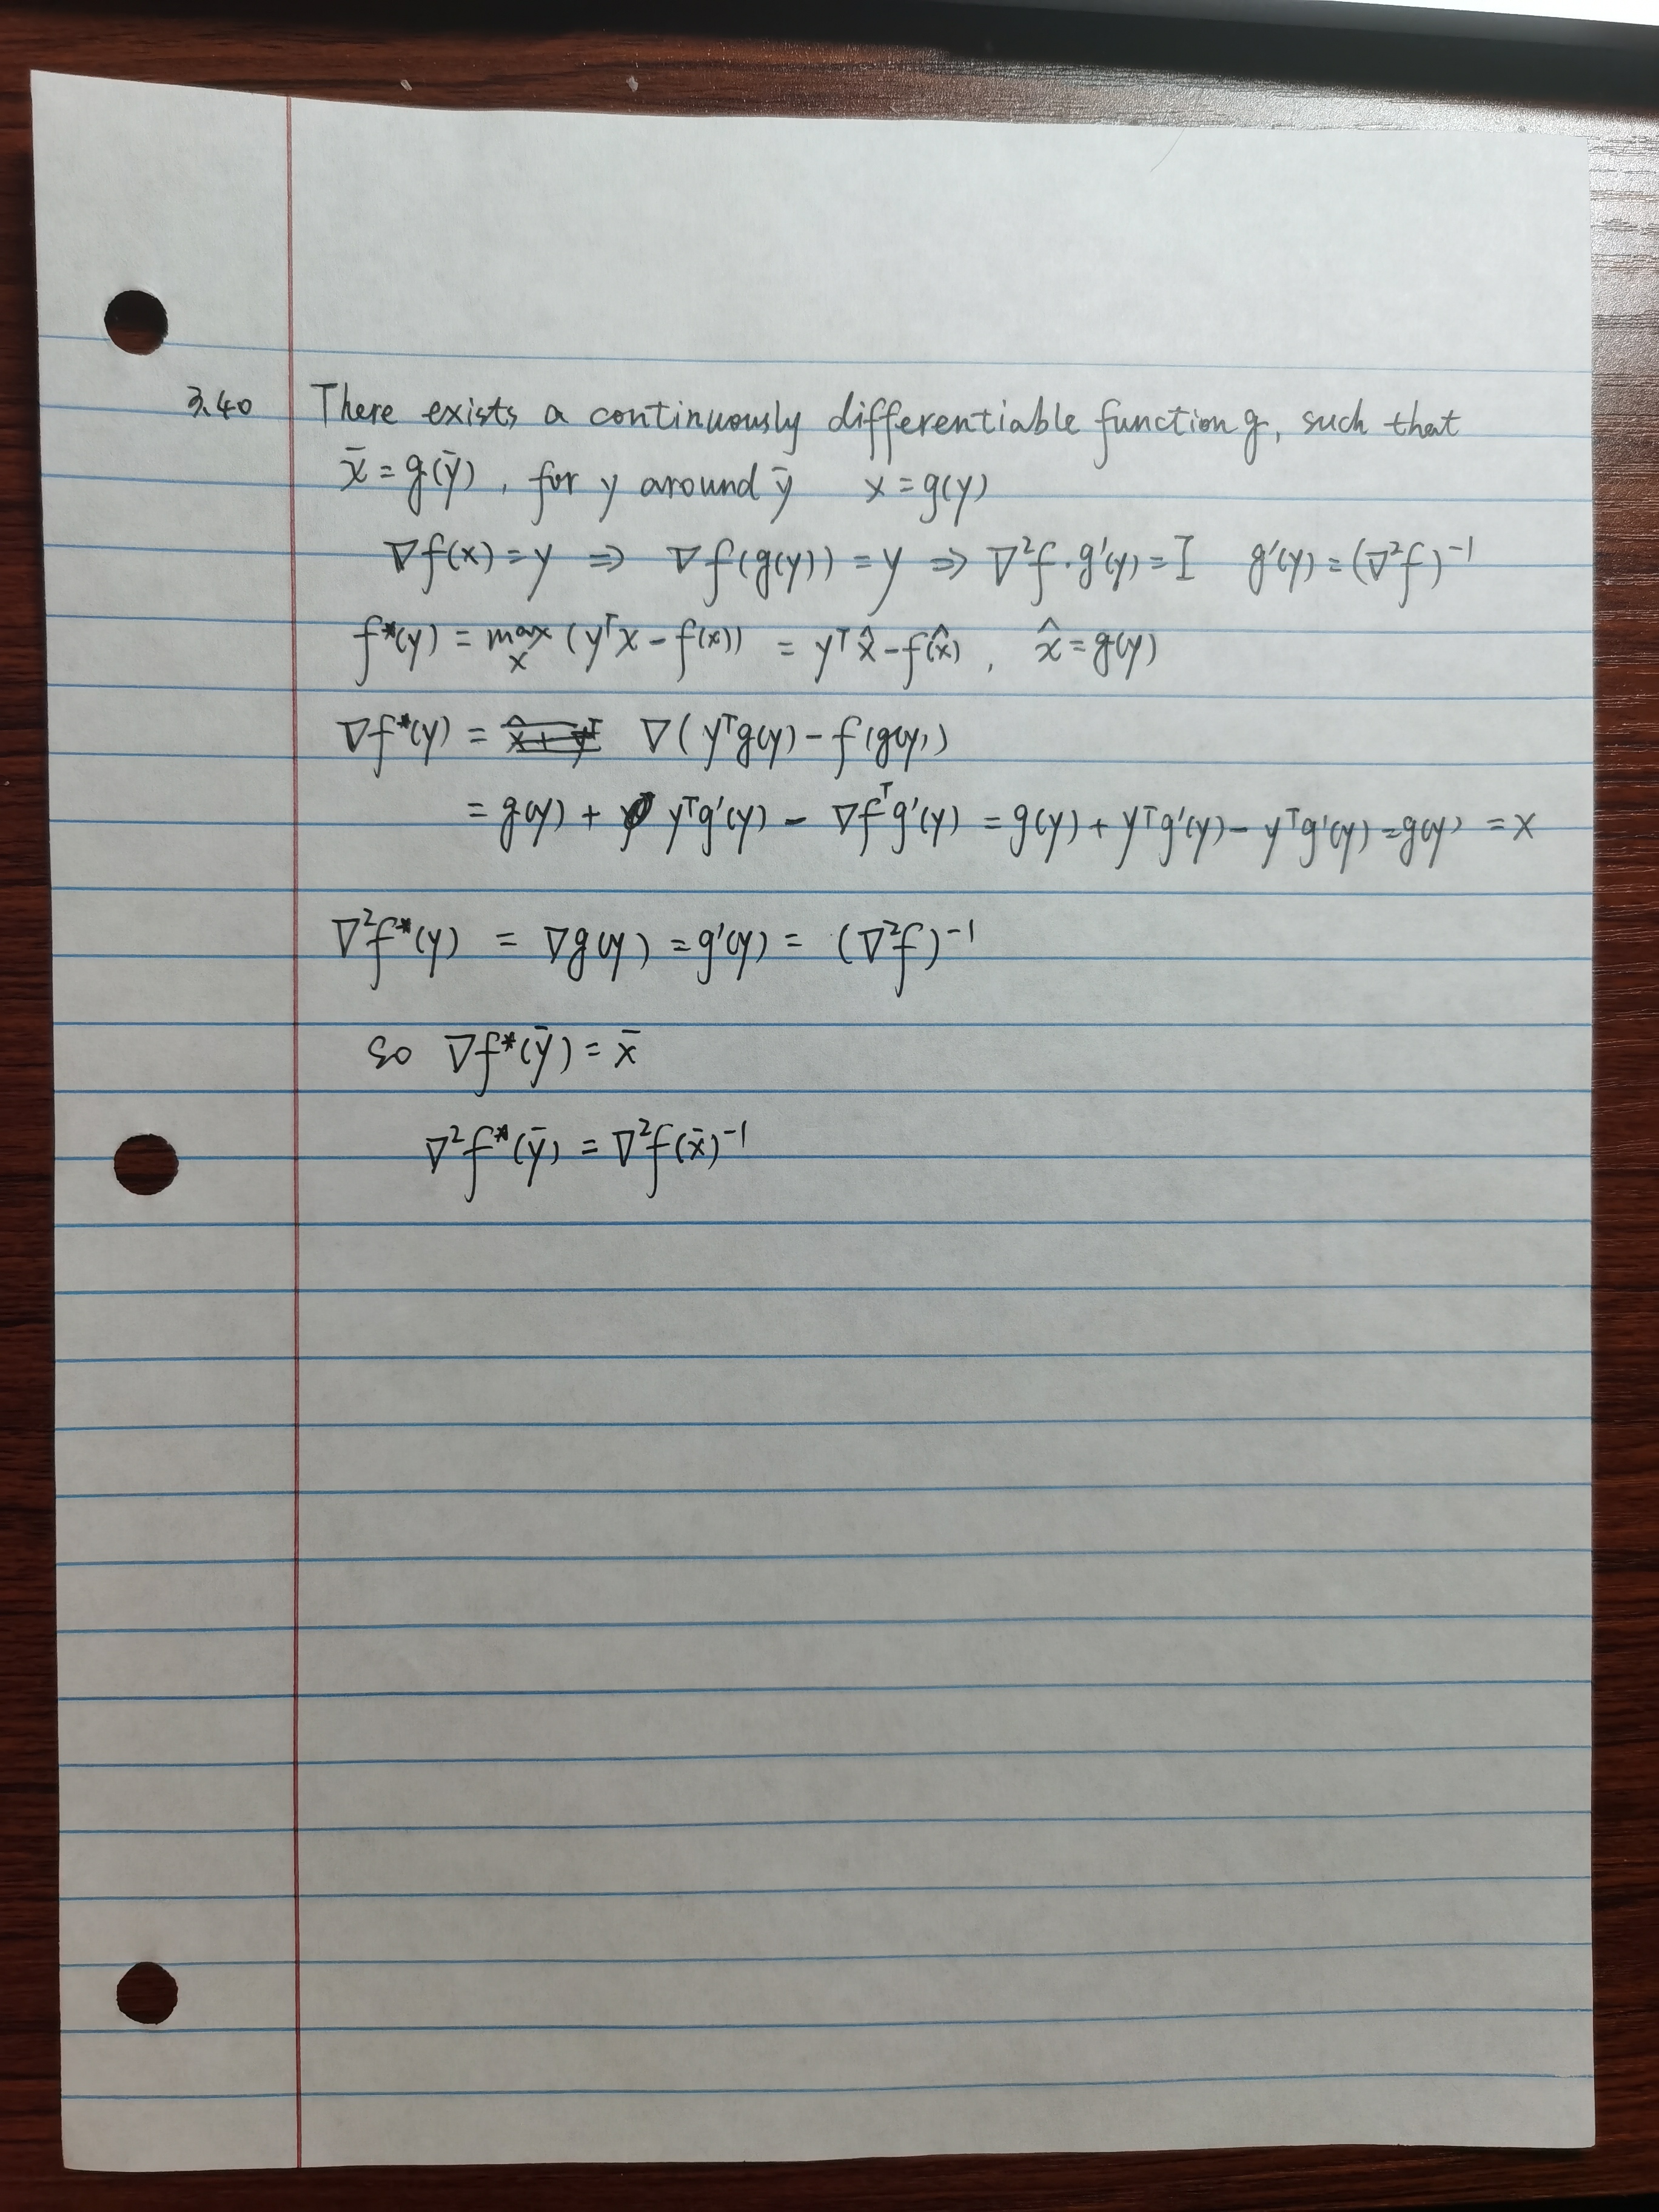 3.40 There exists a continuously differentiable function g, such that
x̄ = g(ȳ), for y around ȳ x = g(y)
∇f(x) = y ⇒ ∇f(g(y)) = y ⇒ ∇²f·g'(y) = I g'(y) = (∇²f)⁻¹
f*(y) = max_x (yᵀx - f(x)) = yᵀx̂ - f(x̂), x̂ = g(y)
∇f*(y) = ∇(yᵀg(y) - f(g(y))
= g(y) + yᵀg'(y) - ∇fᵀg'(y) = g(y) + yᵀg'(y) - yᵀg'(y) = g(y) = x
∇²f*(y) = ∇g(y) = g'(y) = (∇²f)⁻¹
so ∇f*(ȳ) = x̄
∇²f*(ȳ) = ∇²f(x̄)⁻¹